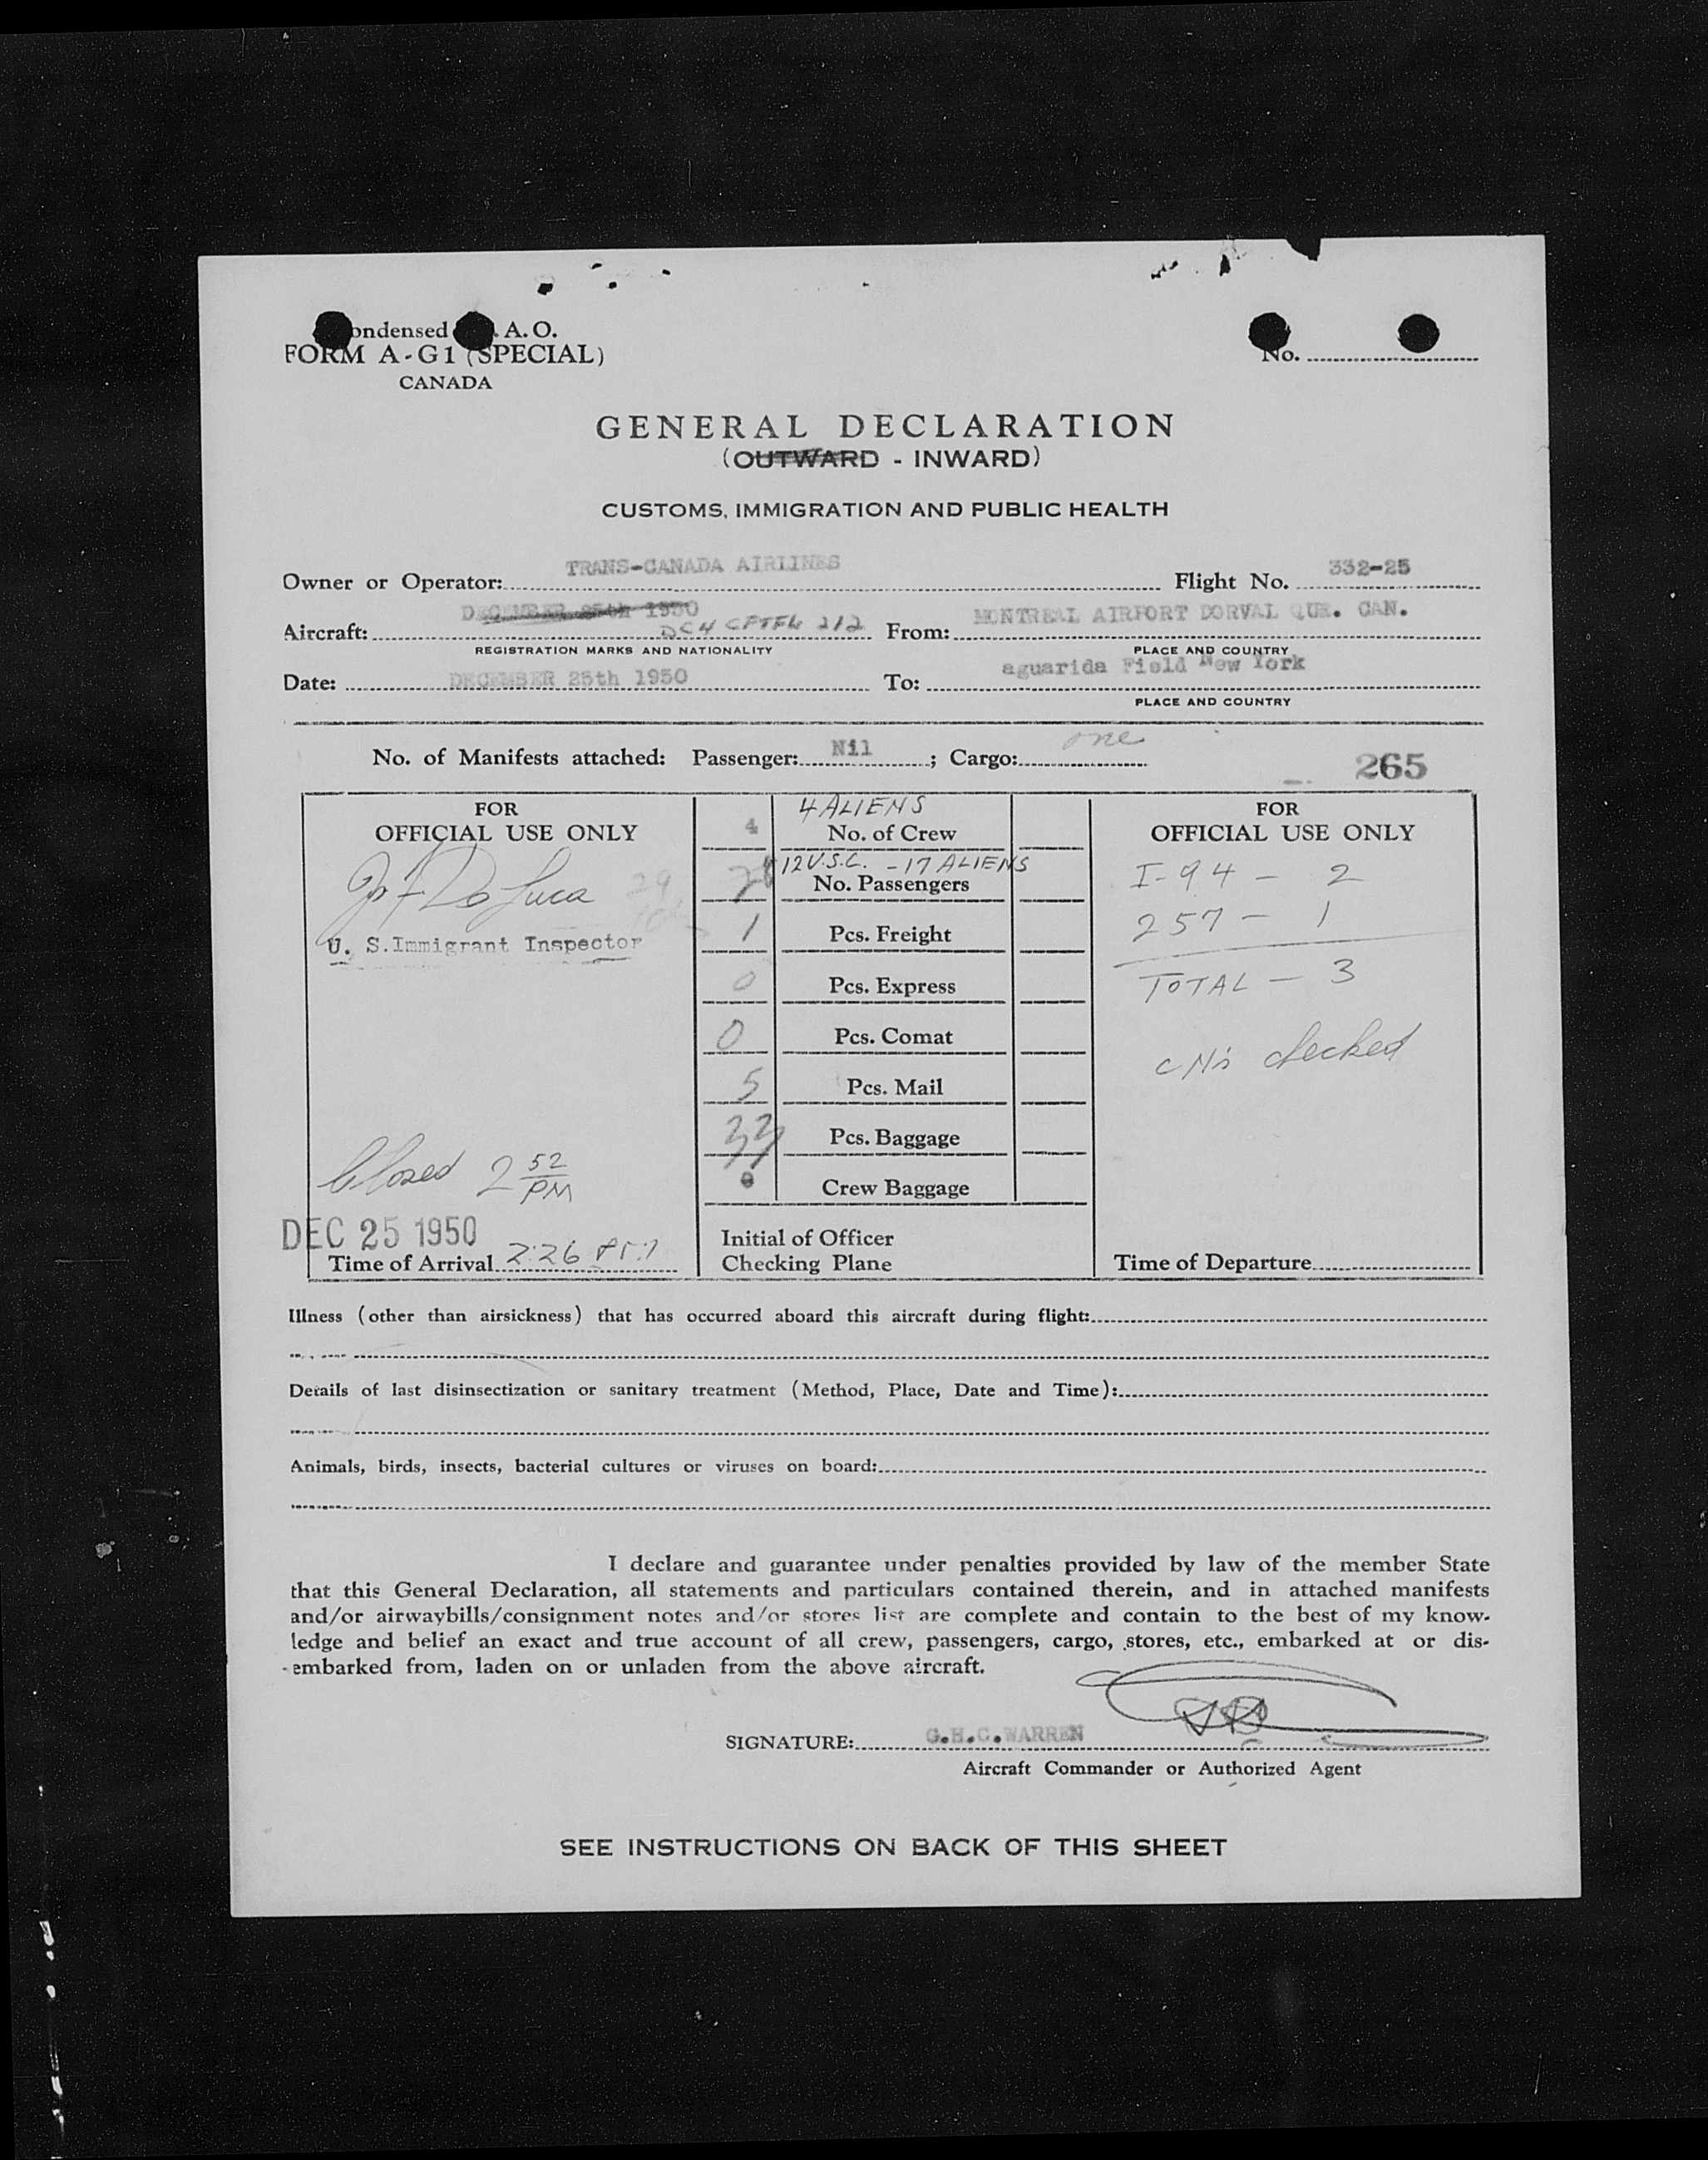 ondensed . A. O.
FORM A-G1 (SPECIAL)
CANADA
No.
GENERAL DECLARATION
(OUTWARD - INWARD)
CUSTOMS, IMMIGRATION AND PUBLIC HEALTH
Owner or Operator: TRANS-CANADA AIRLINES Flight No. 332-25
DECEMBER 25th 1950
Aircraft: DC4 CFTFL 212 From: MONTREAL AIRPORT DORVAL QUE. CAN.
REGISTRATION MARKS AND NATIONALITY PLACE AND COUNTRY
Date: DECEMBER 25th 1950 To: aguarida Field New York
PLACE AND COUNTRY
No. of Manifests attached: Passenger: Nil ; Cargo: one
265
FOR
OFFICIAL USE ONLY
U. S.Immigrant Inspector
Closed 2 52 PM
DEC 25 1950
Time of Arrival 2:26 PM
4 ALIENS
4 No. of Crew
12 U.S.C. - 17 ALIENS
No. Passengers
1 Pcs. Freight
0 Pcs. Express
0 Pcs. Comat
5 Pcs. Mail
33 Pcs. Baggage
0 Crew Baggage
Initial of Officer
Checking Plane
FOR
OFFICIAL USE ONLY
I-94 - 2
257 - 1
TOTAL - 3
checked
Time of Departure
Illness (other than airsickness) that has occurred aboard this aircraft during flight:
Details of last disinsectization or sanitary treatment (Method, Place, Date and Time):
Animals, birds, insects, bacterial cultures or viruses on board:
I declare and guarantee under penalties provided by law of the member State
that this General Declaration, all statements and particulars contained therein, and in attached manifests
and/or airwaybills/consignment notes and/or stores list are complete and contain to the best of my know-
ledge and belief an exact and true account of all crew, passengers, cargo, stores, etc., embarked at or dis-
embarked from, laden on or unladen from the above aircraft.
SIGNATURE: G.H.C.WARREN
Aircraft Commander or Authorized Agent
SEE INSTRUCTIONS ON BACK OF THIS SHEET